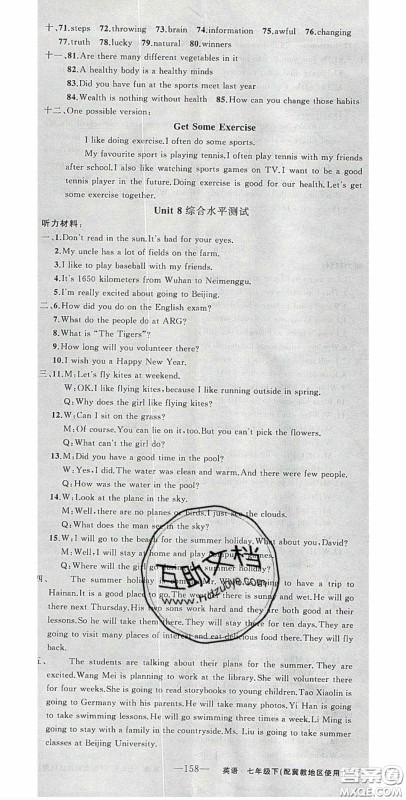 十、71.steps 72.throwing 73.brain 74.information 75.awful 76.changing
77.truth 78.lucky 79.natural 80.winners
十一、81.Are there many different vegetables in it
82.A healthy body is a healthy minds
83.Did you have fun at the sports meet last year
84.Wealth is nothing without health 85.How can you change those habits
十二、One possible version:
Get Some Exercise
I like doing exercise.I often do some sports.
My favourite sport is playing tennis.I often play tennis with my friends
after school.I also like watching sports games on TV.I want to be a good
tennis player in the future.Doing exercise is good for our health.Let's get
some exercise together.
Unit 8 综合水平测试
听力材料:
一、1.Don't read in the sun.It's bad for your eyes.
2.My uncle has a lot of fields on the farm.
3.I like to play baseball with my friends.
4.It's 1650 kilometers from Wuhan to Neimenggu.
5.I'm really excited about going to Beijing.
二、6.How did you do on the English exam?
7.What do the people do at ARG?
8.What is "The Tigers"?
9.How long will you volunteer there?
10.I wish you a Happy New Year.
三、11.M:Let's fly kites at weekend.
W:OK.I like flying kites,because I like running outside in spring.
Q:Why does the girl like flying kites?
12.W:Can I sit on the grass?
M:Of course.You can lie on it,too.But you can't pick the flowers.
Q:What can't the girl do?
13.M:Did you have a good time in the pool?
W:Yes,I did.The water was clean and warm.And there were not too many people.
Q:How was the water in the pool?
14.W:Look at the plane in the sky.
M:Well,there are no planes or birds.I just see the clouds.
Q:What does the man see in the sky?
15.W:I will go to the beach for the summer holiday.What about you,David?
M:Well,I will stay at home and play computer games.
Q:Where will the girl go for the summer holiday?
四、 The summer holiday is coming. are going to have a trip to
Hainan.It is a good place to go.The weather there is sunny and wet.He will go
there next Thursday.His two sons work hard and they are both good students.
So he will take them there.They will stay there for seven days.They are
going to visit many places of interest and eat delicious food there.They will fly
back.
五、 The students are talking about their plans for the summer.They are
excited.Wang Mei is planning to work at the library.She will volunteer there
for four weeks.She is going to read storybooks to young children.Tao Xiaolin is
going to Germany with his parents.He will take many photos there.Li Yan
is going to take swimming lessons.He will go swimming every day.Jim likes to
take swimming lessons with a family in the countryside.Ms. Liu is going to take some
classes at Beijing University.
—158— 英语 七年级下(配冀教地区使用
互助文档
www.Hdzuoye.com